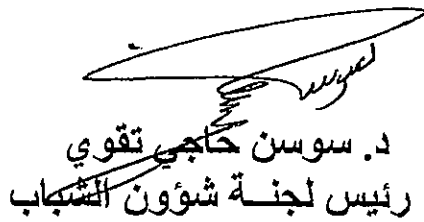 د. سوسن حاجي تقوي
رئيس لجنــة شؤون الشباب